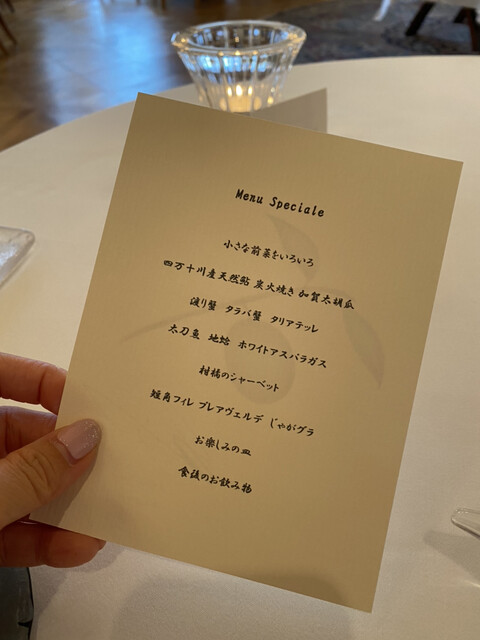 Menu Speciale
小さな前菜をいろいろ
四万十川産天然鮎 炭火焼き 加賀太胡瓜
渡り蟹 タラバ蟹 タリアテッレ
太刀魚 地蛤 ホワイトアスパラガス
柑橘のシャーベット
短角フィレ プレアヴェルデ じゃがグラ
お楽しみの皿
食後のお飲み物